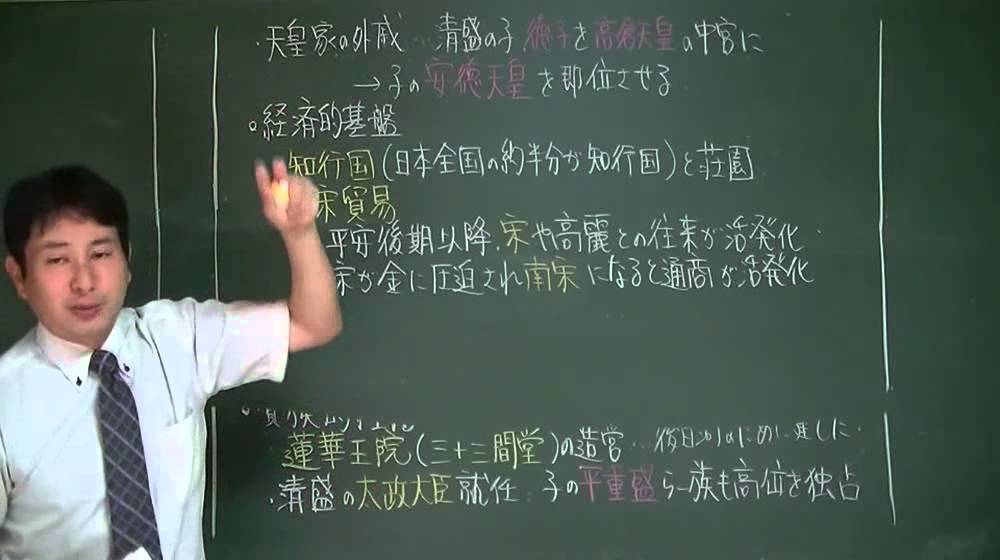 ・天皇家の外戚…清盛の子 徳子を高倉天皇の中宮に
→子の安徳天皇を即位させる
○経済的基盤
知行国(日本全国の約半分が知行国)と荘園
宋貿易
平安後期以降、宋や高麗との往来が活発化
宋が金に圧迫され南宋になると通商が活発化
蓮華王院(三十三間堂)の造営…
・清盛の太政大臣就任…子の平重盛ら一族も高位を独占